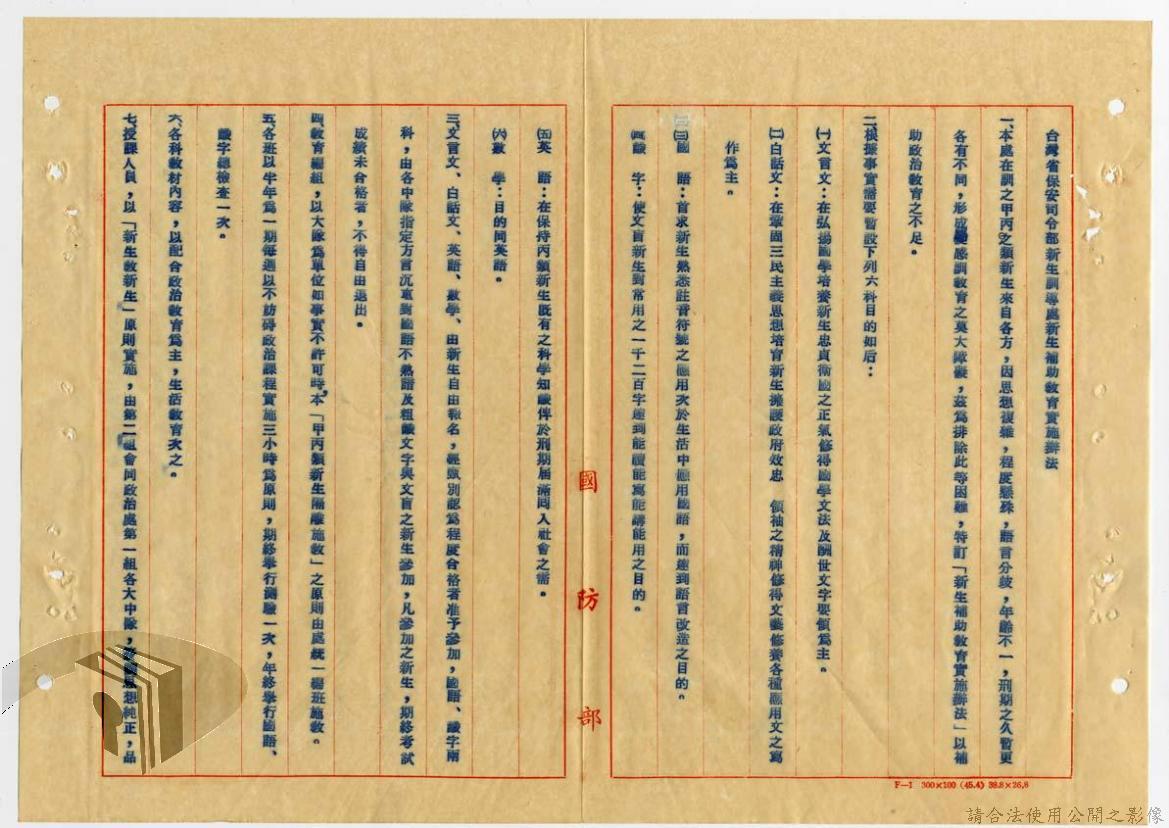 台灣省保安司令部新生訓導處新生補助教育實施辦法
一、本處在訓之甲丙之類新生來自各方，因思想複雜，程度懸殊，語言分歧，年齡不一，刑期之久暫更
各有不同，形成感訓教育之莫大障礙，茲為排除此等困難，特訂「新生補助教育實施辦法」以補
助政治教育之不足。
二、根據事實需要暫設下列六科目的如后：
㈠文言文：在弘揚國學培養新生忠貞衛國之正氣修得國學文法及酬世文字要領為主。
㈡白話文：在鞏固三民主義思想培育新生擁護政府效忠　領袖之精神修得文藝修養各種應用文之寫
作為主。
㈢國　語：首求新生熟悉註音符號之應用次於生活中應用國語，而達到語言改造之目的。
㈣識　字：使文盲新生對常用之一千二百字達到能讀能寫能講能用之目的。
㈤英　語：在保持丙類新生既有之科學知識俾於刑期屆滿問入社會之需。
㈥數　學：目的同英語。
三、文言文、白話文、英語、數學、由新生自由報名，經甄別認為程度合格者准予參加，國語、識字兩
科，由各中隊指定方言沉重對國語不熟諳及粗識文字與文盲之新生參加，凡參加之新生，期終考試
成績未合格者，不得自由退出。
四、教育編組，以大隊為單位如事實不許可時，本「甲丙類新生隔離施教」之原則由處統一編班施教。
五、各班以半年為一期每週以不妨碍政治課程實施三小時為原則，期終舉行測驗一次，年終舉行國語、
識字總檢查一次。
六、各科教材內容，以配合政治教育為主，生活教育次之。
七、授課人員，以「新生教新生」原則實施，由第二組會同政治處第一組各大中隊，思想純正，品
國防部
F—1 300×100 (45.4) 38.8×26.8
請合法使用公開之影像